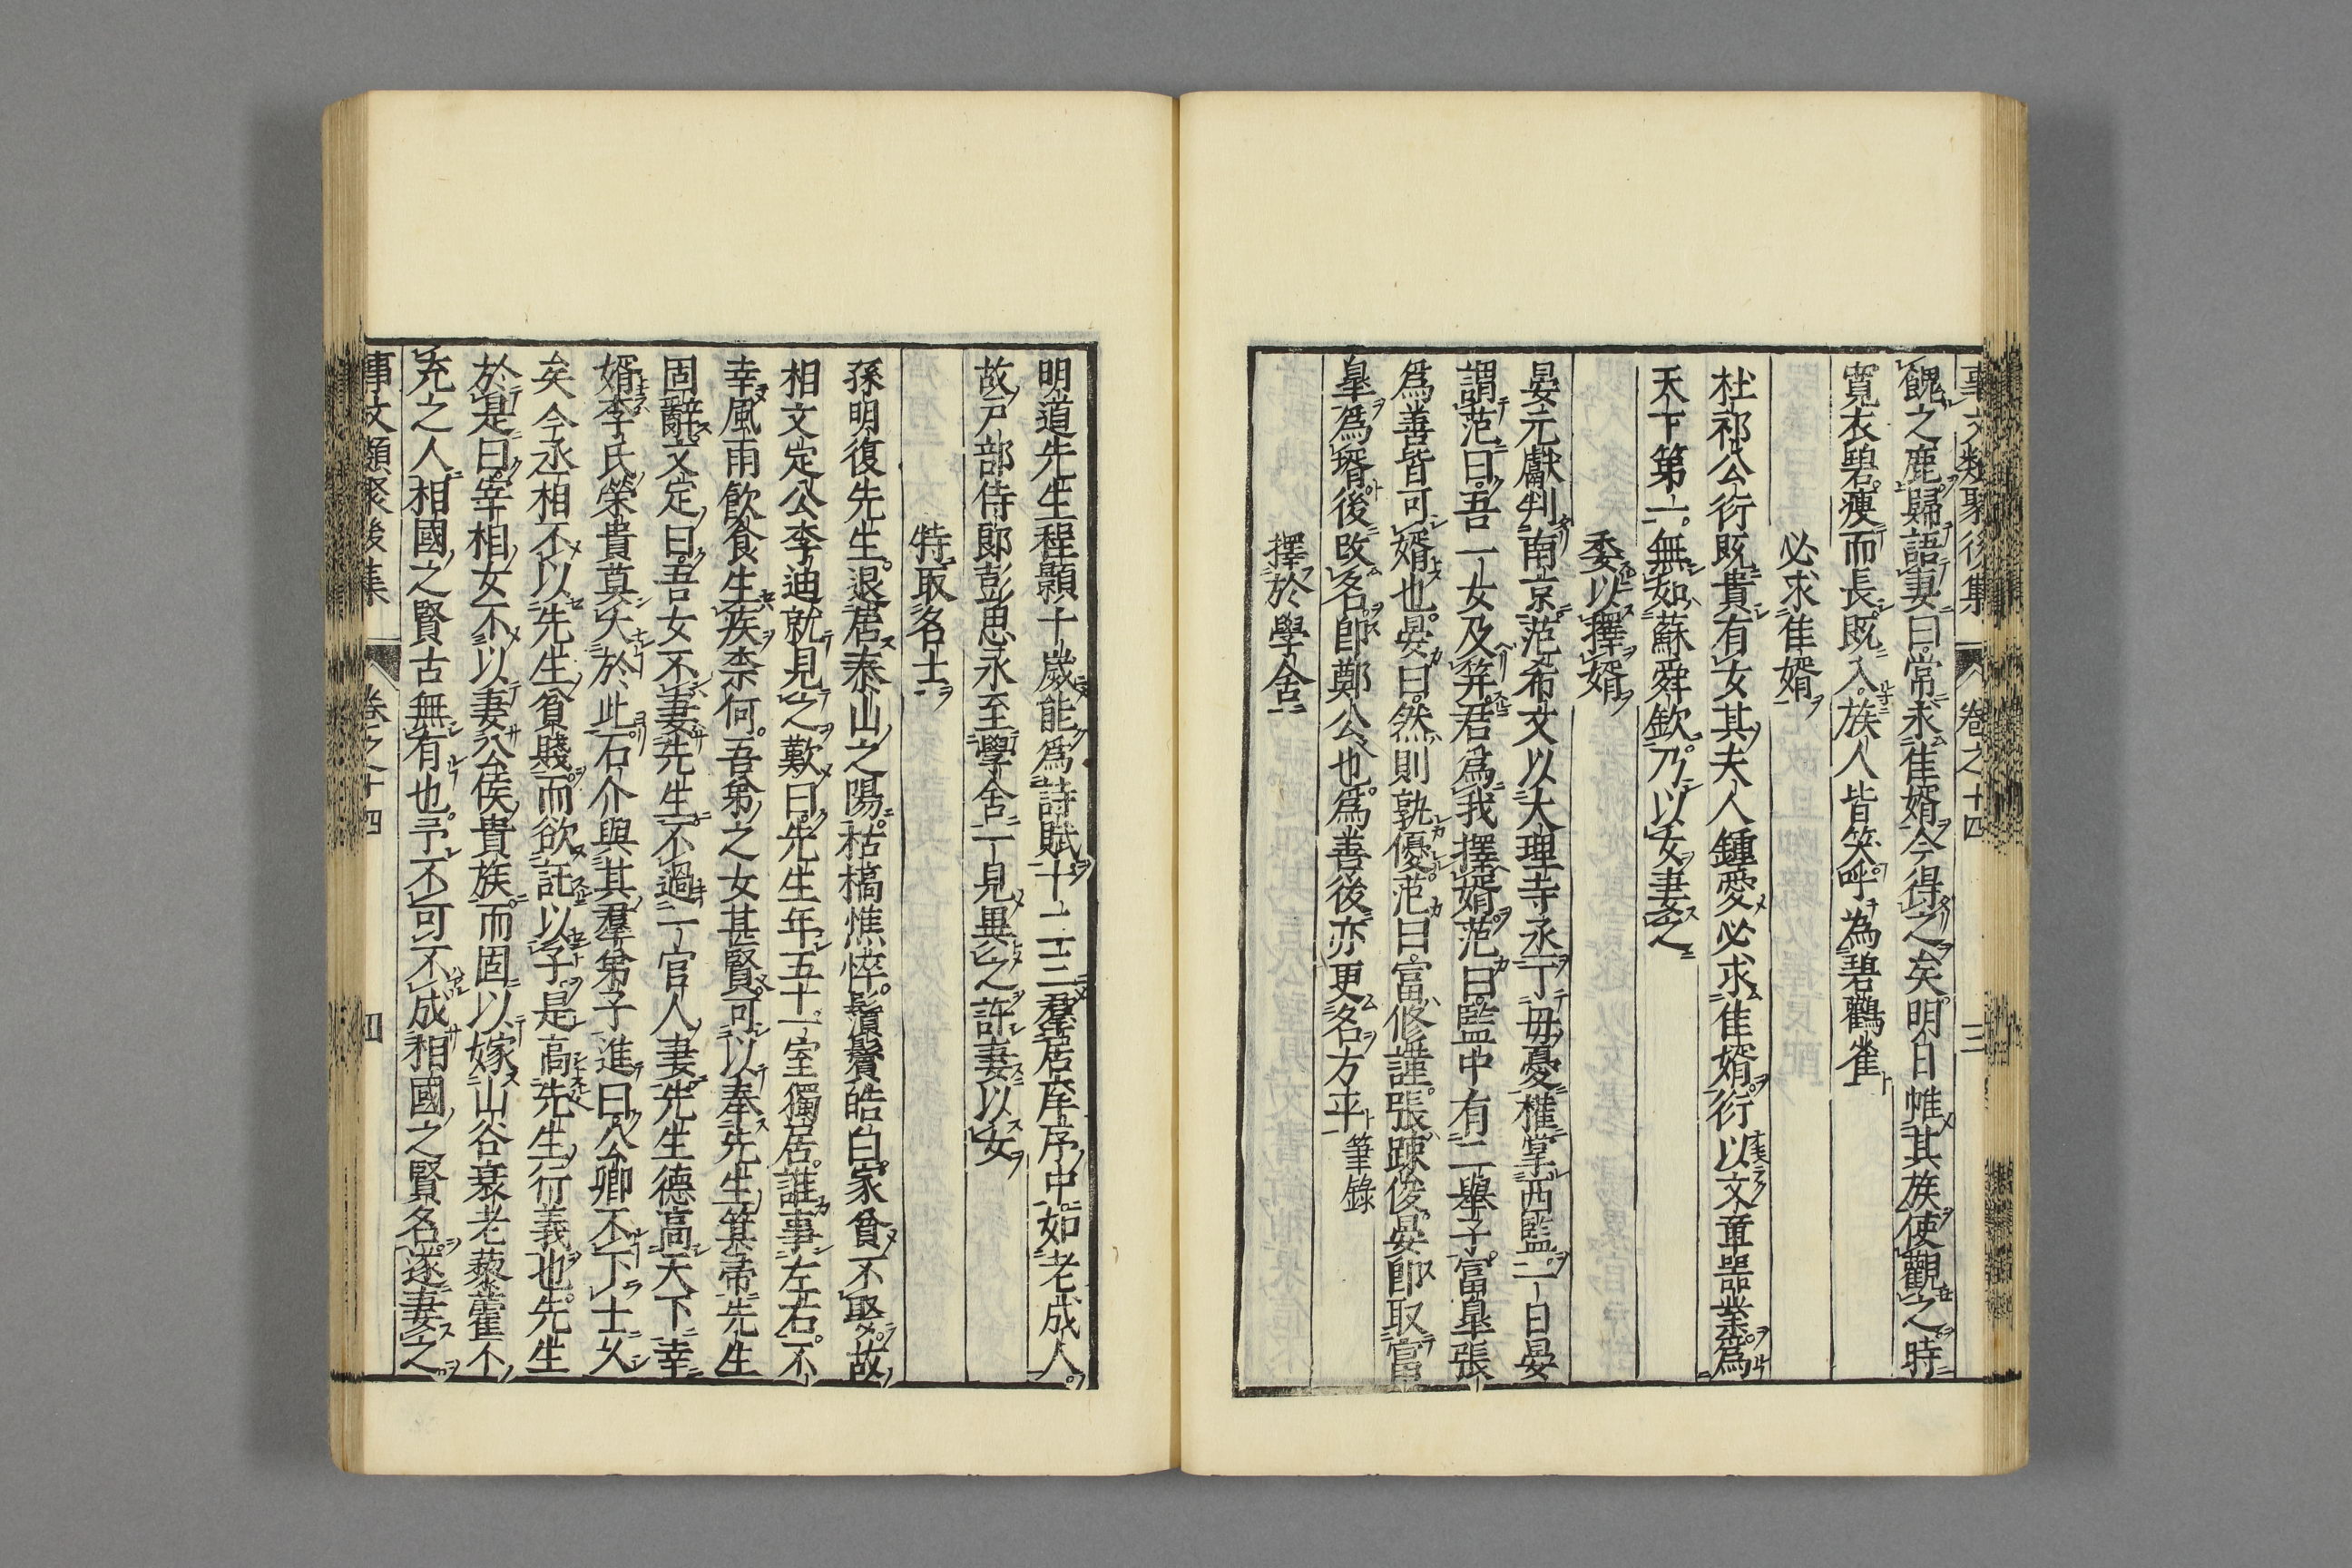 事文類聚後集 卷之十四 三
餽之鹿歸語妻曰常求佳婿今得之矣明日帷其族使觀之時
寛衣碧瘦而長既入族人皆笑呼為碧鸛雀
必求佳婿
杜祁公衍既貴有女其夫人鍾愛必求佳婿衍以文章器業爲
天下第一無如蘇舜欽乃以女妻之
委以擇婿
晏元獻判南京范希文以大理寺丞丁毋憂權掌西監一日晏
謂范曰吾一女及笄君爲我擇婿范曰監中有二舉子富臯張
爲善皆可婿也晏曰然則孰優范曰富修謹張疎俊晏即取富
臯爲壻後改名即鄭公也爲善後亦更名方平筆錄
擇於學舍
明道先生程顥十歲能爲詩賦十二三羣居庠序中如老成人
故戸部侍郎彭思永至學舍一見異之許妻以女
特取名士
孫明復先生退居泰山之陽枯槁憔悴鬚鬢皓白家貧不娶故
相文定公李迪就見之歎曰先生年五十一室獨居誰事左右不
幸風雨飲食生疾柰何吾弟之女甚賢可以奉先生箕帚先生
固辭文定曰吾女不妻先生不過一官人妻先生德高天下幸
婿李氏榮貴莫大於此石介與其羣弟子進曰公卿不下士久
矣今丞相不以先生貧賤而欲託以子是高先生行義也先生
於是曰宰相女不以妻公侯貴族而固以嫁山谷衰老藜藿不
充之人相國之賢古無有也予不可不成相國之賢名遂妻之
事文類聚後集 卷之十四 四